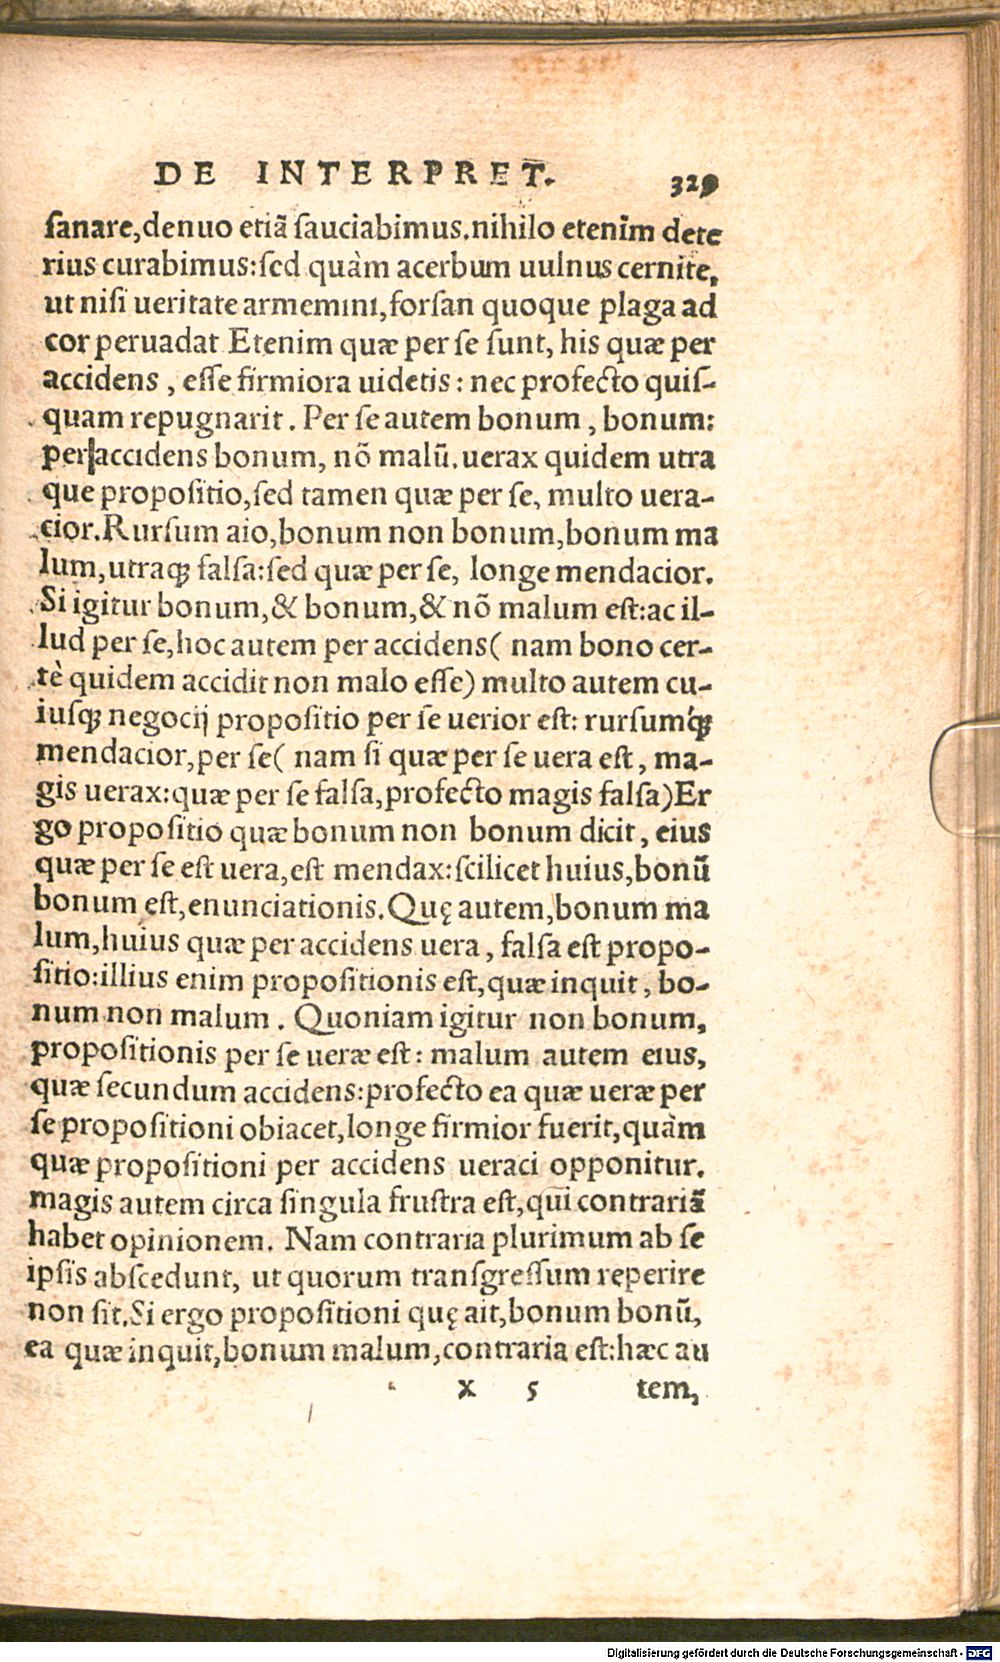 DE INTERPRET. 329
sanare,denuo etiã sauciabimus.nihilo etenĩm dete
rius curabimus:sed quàm acerbum uulnus cernite,
ut nisi ueritate armemini,forsan quoque plaga ad
cor peruadat Etenim quæ per se sunt, his quæ per
accidens , esse firmiora uidetis : nec profecto quis-
quam repugnarit . Per se autem bonum , bonum:
per accidens bonum, nõ malũ.uerax quidem utra
que propositio,sed tamen quæ per se, multo uera-
cior.Rursum aio,bonum non bonum,bonum ma
lum,utraqꝫ falsa:sed quæ per se, longe mendacior.
Si igitur bonum,& bonum,& nõ malum est:ac il-
lud per se,hoc autem per accidens( nam bono cer-
tè quidem accidit non malo esse) multo autem cu-
iusqꝫ negocij propositio per se uerior est: rursum´qꝫ
mendacior,per se( nam si quæ per se uera est , ma-
gis uerax:quæ per se falsa,profecto magis falsa)Er
go propositio quæ bonum non bonum dicit , eius
quæ per se est uera,est mendax:scilicet huius,bonũ
bonum est,enunciationis.Quę autem,bonum ma
lum,huius quæ per accidens uera , falsa est propo-
sitio:illius enim propositionis est,quæ inquit , bo-
num non malum . Quoniam igitur non bonum,
propositionis per se ueræ est : malum autem eius,
quæ secundum accidens:profecto ea quæ ueræ per
se propositioni obiacet,longe firmior fuerit,quàm
quæ propositioni per accidens ueraci opponitur.
magis autem circa singula frustra est,qui contrariã
habet opinionem. Nam contraria plurimum ab se
ipsis abscedunt, ut quorum transgressum reperire
non sit.Si ergo propositioni quę ait,bonum bonũ,
ea quæ inquit,bonum malum,contraria est:hæc au
X 5 tem,
Digitalisierung gefördert durch die Deutsche Forschungsgemeinschaft - DFG